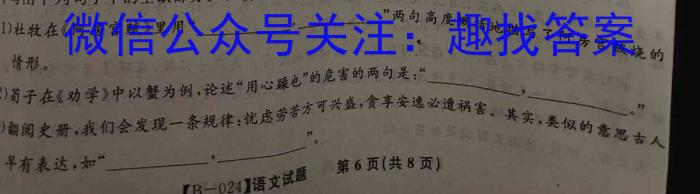 微信公众号关注：趣找答案
1)杜牧在《阿房宫赋》里用"________，________"两句高度
烧的
情形。
2)荀子在《劝学》中以蟹为例，论述"用心躁也"的危害的两句是："________，________。"
)翻阅史册，我们会发现一条规律：忧虑劳苦方可兴盛，贪享安逸必遭祸害。其实，类似的意思古人
早有表达，如"________，________"。
【B-024】语文试题 第6页(共8页)